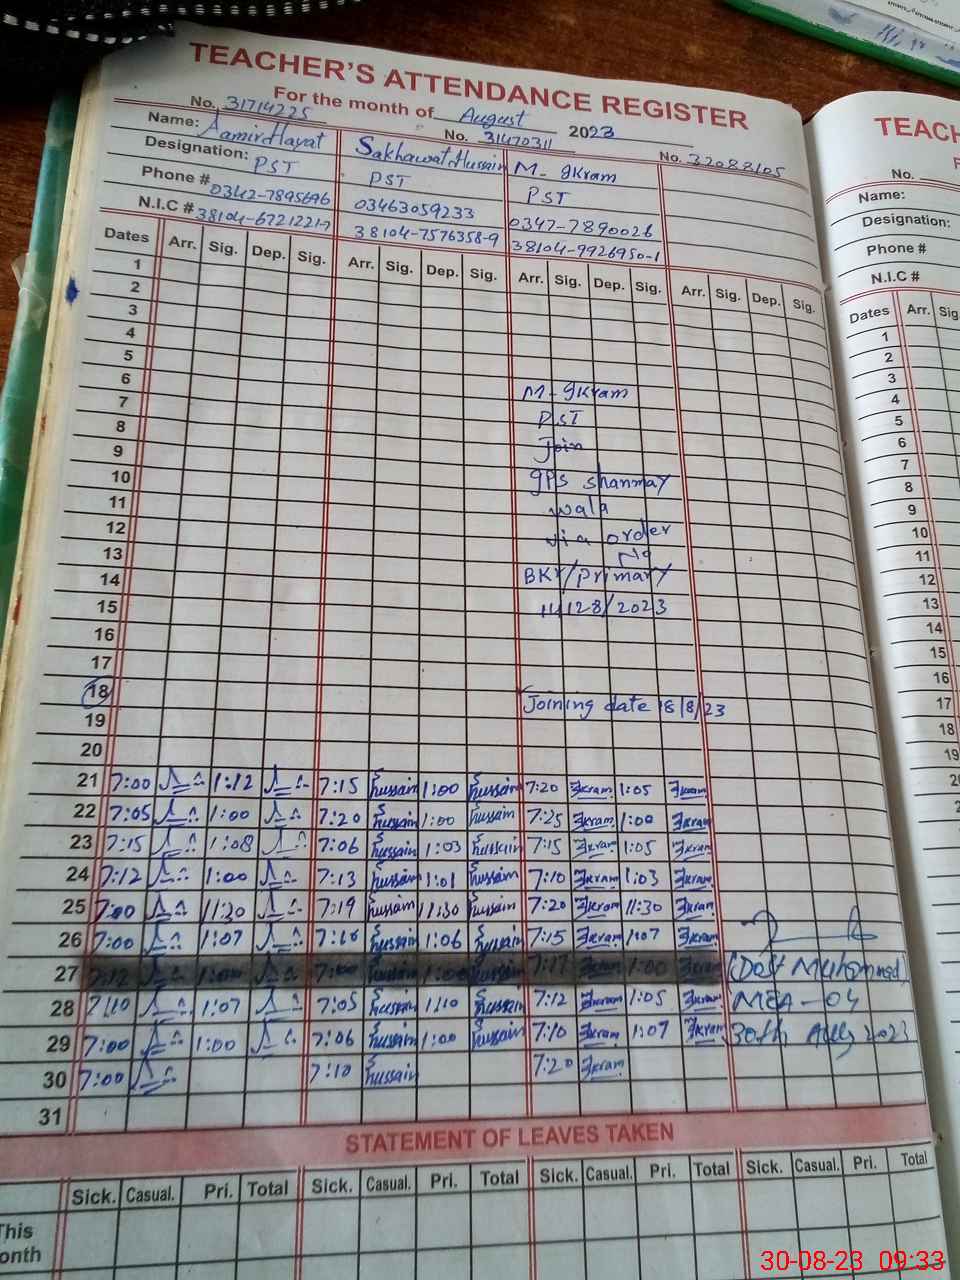 TEACHER'S ATTENDANCE REGISTER
For the month of August 2023
No. 31714225 No. 31470311 No. 32088105
Name: Aamir Hayat Sakhawat Hussain M- Ikram
Designation: PST PST PST
Phone # 0342-7895696 03463059233 0347-7890026
N.I.C # 38104-6721221-7 38104-7576358-9 38104-9926950-1
Dates Arr. Sig. Dep. Sig. Arr. Sig. Dep. Sig. Arr. Sig. Dep. Sig. Arr. Sig. Dep. Sig.
1
2
3
4
5
6 M- Ikram
7 PST
8 Join
9 GPS Shanmay
10 wala
11 via order
12 No
13 BKr/Primary
14 11128/2023
15
16
17
18 Joining date 18/8/23
19
20
21 7:00 1:12 7:15 hussain 1:00 hussain 7:20 Ikram 1:05 Ikram
22 7:05 1:00 7:20 hussain 1:00 hussain 7:25 Ikram 1:00 Ikram
23 7:15 1:08 7:06 hussain 1:03 hussain 7:15 Ikram 1:05 Ikram
24 7:12 1:00 7:13 hussain 1:01 hussain 7:10 Ikram 1:03 Ikram
25 7:00 11:30 7:19 hussain 11:30 hussain 7:20 Ikram 11:30 Ikram
26 7:00 1:07 7:10 hussain 1:06 hussain 7:15 Ikram 1:07 Ikram
27 7:12 hussain 1:00 hussain 7:17 Ikram 1:00 Ikram (Dost Muhammad)
28 7:10 1:07 7:05 hussain 1:10 hussain 7:12 Ikram 1:05 Ikram MEA-04
29 7:00 1:00 7:06 hussain 1:00 hussain 7:10 Ikram 1:07 Ikram 30th Aug 2023
30 7:00 7:10 hussain 7:20 Ikram
31
STATEMENT OF LEAVES TAKEN
Sick. Casual. Pri. Total Sick. Casual. Pri. Total Sick. Casual. Pri. Total Sick. Casual. Pri. Total
This
onth
TEACH
No.
Name:
Designation:
Phone #
N.I.C #
Dates Arr. Sig
1
2
3
4
5
6
7
8
9
10
11
12
13
14
15
16
17
18
19
20
30-08-23 09:33